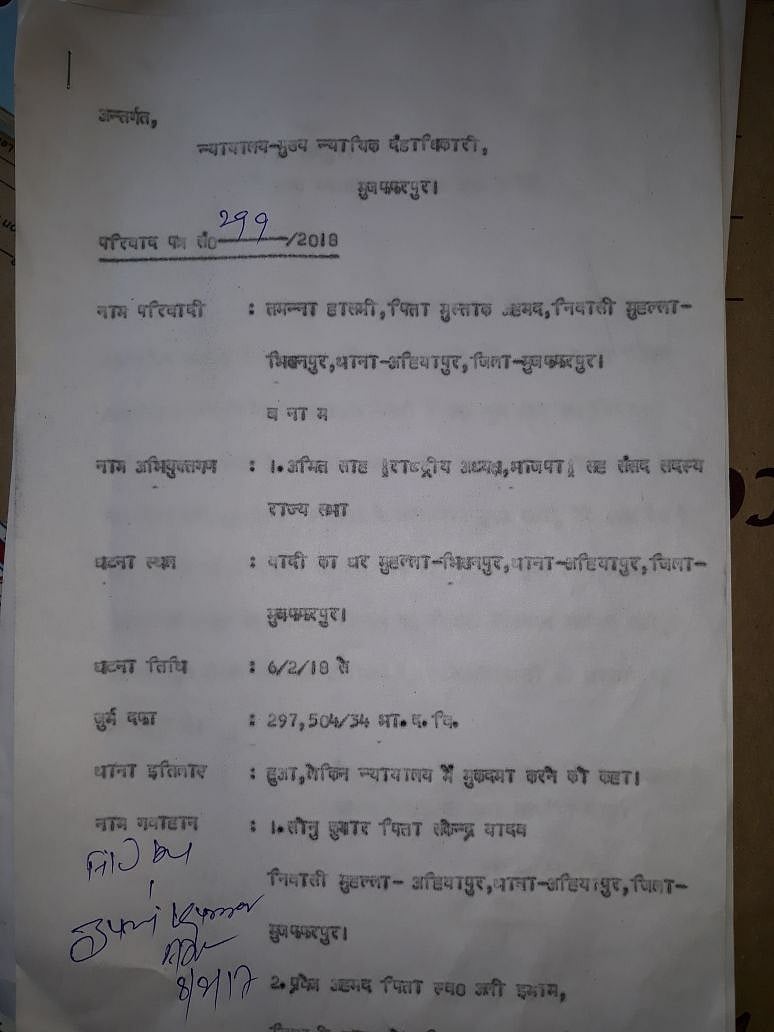 अन्तर्गत,
न्यायालय-मुख्य न्यायिक दंडाधिकारी,
मुजफ्फरपुर।
परिवाद पत्र सं० 299/2018
नाम परिवादी : तमन्ना हाशमी, पिता मुस्ताक अहमद, निवासी मुहल्ला-
भिखनपुर, थाना-अहियापुर, जिला-मुजफ्फरपुर।
ब ना म
नाम अभियुक्तगण : 1. अमित शाह [राष्ट्रीय अध्यक्ष, भाजपा] सह संसद सदस्य
राज्य सभा
घटना स्थल : वादी का घर मुहल्ला-भिखनपुर, थाना-अहियापुर, जिला-
मुजफ्फरपुर।
घटना तिथि : 6/2/18 से
जुर्म दफा : 297,504/34 भा.द.वि.
थाना इतिलाए : हुआ, लेकिन न्यायालय में मुकदमा करने को कहा।
नाम गवाहान : 1. सोनु कुमार पिता
यादव
निवासी मुहल्ला- अहियापुर, थाना-अहियापुर, जिला-
मुजफ्फरपुर।
Kumar
2.
अहमद पिता स्व० अली इमाम,